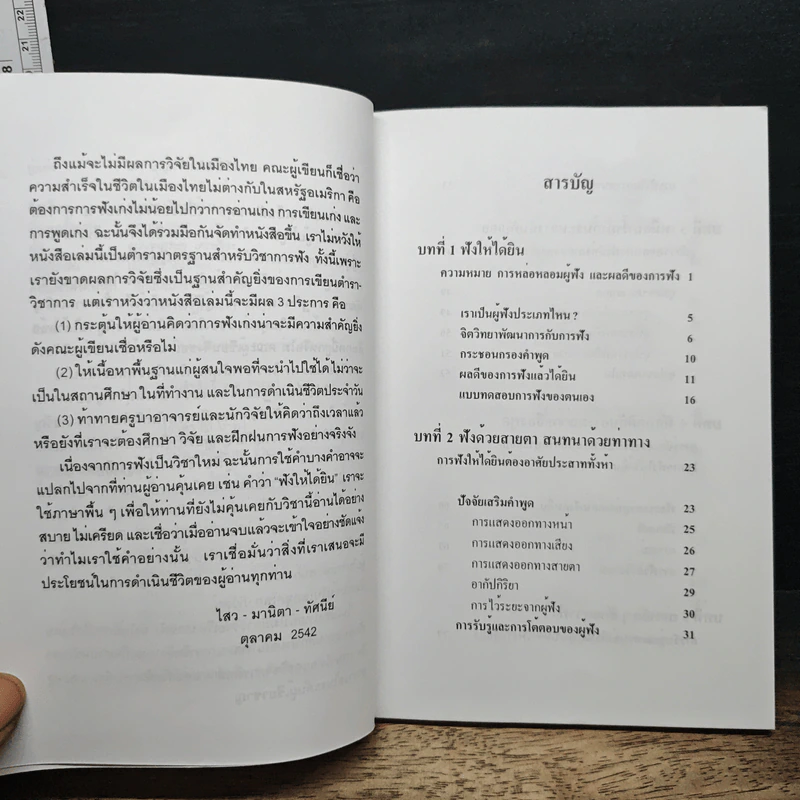 ถึงแม้จะไม่มีผลการวิจัยในเมืองไทย คณะผู้เขียนก็เชื่อว่า
ความสำเร็จในชีวิตในเมืองไทยไม่ต่างกับในสหรัฐอเมริกา คือ
ต้องการการฟังเก่งไม่น้อยไปกว่าการอ่านเก่ง การเขียนเก่ง และ
การพูดเก่ง ฉะนั้นจึงได้ร่วมมือกันจัดทำหนังสือขึ้น เราไม่หวังให้
หนังสือเล่มนี้เป็นตำรามาตรฐานสำหรับวิชาการฟัง ทั้งนี้เพราะ
เรายังขาดผลการวิจัยซึ่งเป็นฐานสำคัญยิ่งของการเขียนตำรา-
วิชาการ แต่เราหวังว่าหนังสือเล่มนี้จะมีผล 3 ประการ คือ
(1) กระตุ้นให้ผู้อ่านคิดว่าการฟังเก่งน่าจะมีความสำคัญยิ่ง
ดังคณะผู้เขียนเชื่อหรือไม่
(2) ให้เนื้อหาพื้นฐานแก่ผู้สนใจพอที่จะนำไปใช้ได้ ไม่ว่าจะ
เป็นในสถานศึกษา ในที่ทำงาน และในการดำเนินชีวิตประจำวัน
(3) ท้าทายครูบาอาจารย์และนักวิจัยให้คิดว่าถึงเวลาแล้ว
หรือยังที่เราจะต้องศึกษา วิจัย และฝึกฝนการฟังอย่างจริงจัง
เนื่องจากการฟังเป็นวิชาใหม่ ฉะนั้นการใช้คำบางคำอาจจะ
แปลกไปจากที่ท่านผู้อ่านคุ้นเคย เช่น คำว่า "ฟังให้ได้ยิน" เราจะ
ใช้ภาษาพื้น ๆ เพื่อให้ท่านที่ยังไม่คุ้นเคยกับวิชานี้อ่านได้อย่าง
สบาย ไม่เครียด และเชื่อว่าเมื่ออ่านจบแล้วจะเข้าใจอย่างชัดแจ้ง
ว่าทำไมเราใช้คำอย่างนั้น เราเชื่อมั่นว่าสิ่งที่เราเสนอจะมี
ประโยชน์ในการดำเนินชีวิตของผู้อ่านทุกท่าน
ไสว - มานิตา - ทัศนีย์
ตุลาคม 2542
สารบัญ
บทที่ 1 ฟังให้ได้ยิน
ความหมาย การหล่อหลอมผู้ฟัง และผลดีของการฟัง 1
เราเป็นผู้ฟังประเภทไหน ? 5
จิตวิทยาพัฒนาการกับการฟัง 6
กระชอนกรองคำพูด 10
ผลดีของการฟังแล้วได้ยิน 11
แบบทดสอบการฟังของตนเอง 16
บทที่ 2 ฟังด้วยสายตา สนทนาด้วยท่าทาง
การฟังให้ได้ยินต้องอาศัยประสาททั้งห้า 23
ปัจจัยเสริมคำพูด 23
การแสดงออกทางหน้า 25
การแสดงออกทางเสียง 26
การแสดงออกทางสายตา 27
อากัปกิริยา 29
การไว้ระยะจากผู้ฟัง 30
การรับรู้และการโต้ตอบของผู้ฟัง 31
22
21
8